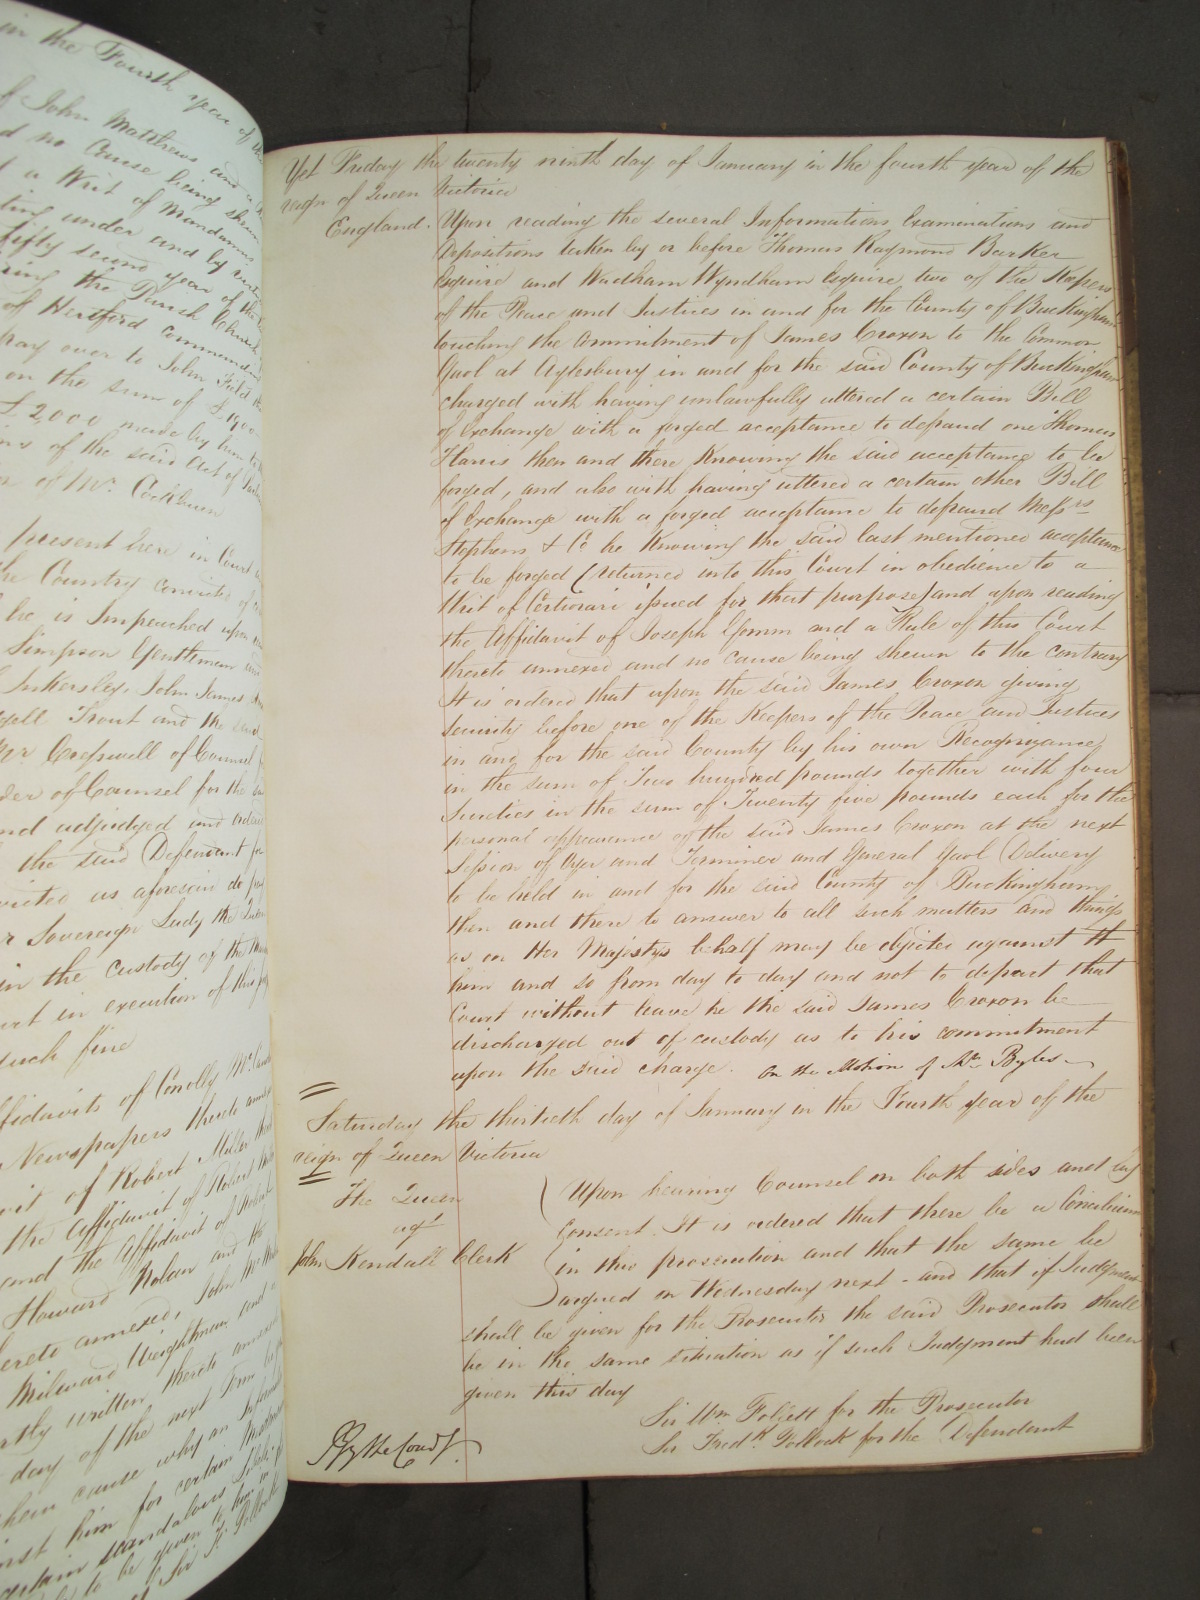 in the Fourth year of the
of John Matthews and
d no Cause being shewn
a Writ of Mandamus
ting under and by virtue
fifty second year of the
ring the Parish Church
of Hertford commanding
pay over to John Field
on the sum of £1900
£2,000 made by him
ns of the said Act of
n of Mr. Cockburn
present here in Court
the Country convicted of
he is Impeached upon
Simpson Gentleman and
Inkersley, John James
gall Trout and the said
Mr Cresswell of Counsel
der of Counsel for the
nd adjudged and
the said Defendant for
victed as aforesaid do pay
r Sovereign Lady the Queen
in the custody of the
urt in execution of this
such fine
ffidavits of Conolly
Newspapers thereto
vit of Robert Miller
the affidavit of Robert
and the Affidavit of
Howard Nolan and the
hereto annexed, John
Milward Weightman and
rtly written thereto annexed
day of the next Term
shew cause why an
nst him for certain
ertain scandalous
to be given to him
Sir F. Pollock
Yet Friday the twenty ninth day of January in the fourth year of the
reign of Queen Victoria
England. Upon reading the several Informations Examinations and
Depositions taken by or before Thomas Raymond Barker
Esquire and Wadham Wyndham Esquire two of the Keepers
of the Peace and Justices in and for the County of Buckingham
touching the commitment of James Croxon to the Common
Gaol at Aylesbury in and for the said County of Buckingham
charged with having unlawfully uttered a certain Bill
of Exchange with a forged acceptance to defraud one Thomas
Harris then and there Knowing the said acceptance to be
forged, and also with having uttered a certain other Bill
of Exchange with a forged acceptance to defraud Messrs
Stephens & Co he Knowing the said last mentioned acceptance
to be forged (returned into this Court in obedience to a
Writ of Certiorari issued for that purpose) and upon reading
the Affidavit of Joseph Gomm and a Rule of this Court
thereto annexed and no cause being shewn to the contrary
It is ordered that upon the said James Croxon giving
security before one of the Keepers of the Peace and Justices
in and for the said County by his own Recognizance
in the sum of Two hundred pounds together with four
Sureties in the sum of Twenty five pounds each for the
personal appearance of the said James Croxon at the next
Session of Oyer and Terminer and General Gaol Delivery
to be held in and for the said County of Buckingham
then and there to answer to all such matters and things
as on Her Majestys behalf may be objected against
him and so from day to day and not to depart that
Court without leave he the said James Croxon be
discharged out of custody as to his commitment
upon the said charge. On the Motion of Mr Byles
Saturday the thirtieth day of January in the Fourth year of the
reign of Queen Victoria
The Queen
agt
John Kendall Clerk
Upon hearing Counsel on both sides and by
Consent. It is ordered that there be a Concilium
in this prosecution and that the same be
argued on Wednesday next - and that if Judgment
shall be given for the Prosecutor the said Prosecutor shall
be in the same situation as if such Judgment had been
given this day
Sir Wm Follett for the Prosecutor
Sir Fredk Pollock for the Defendant
By the Court.